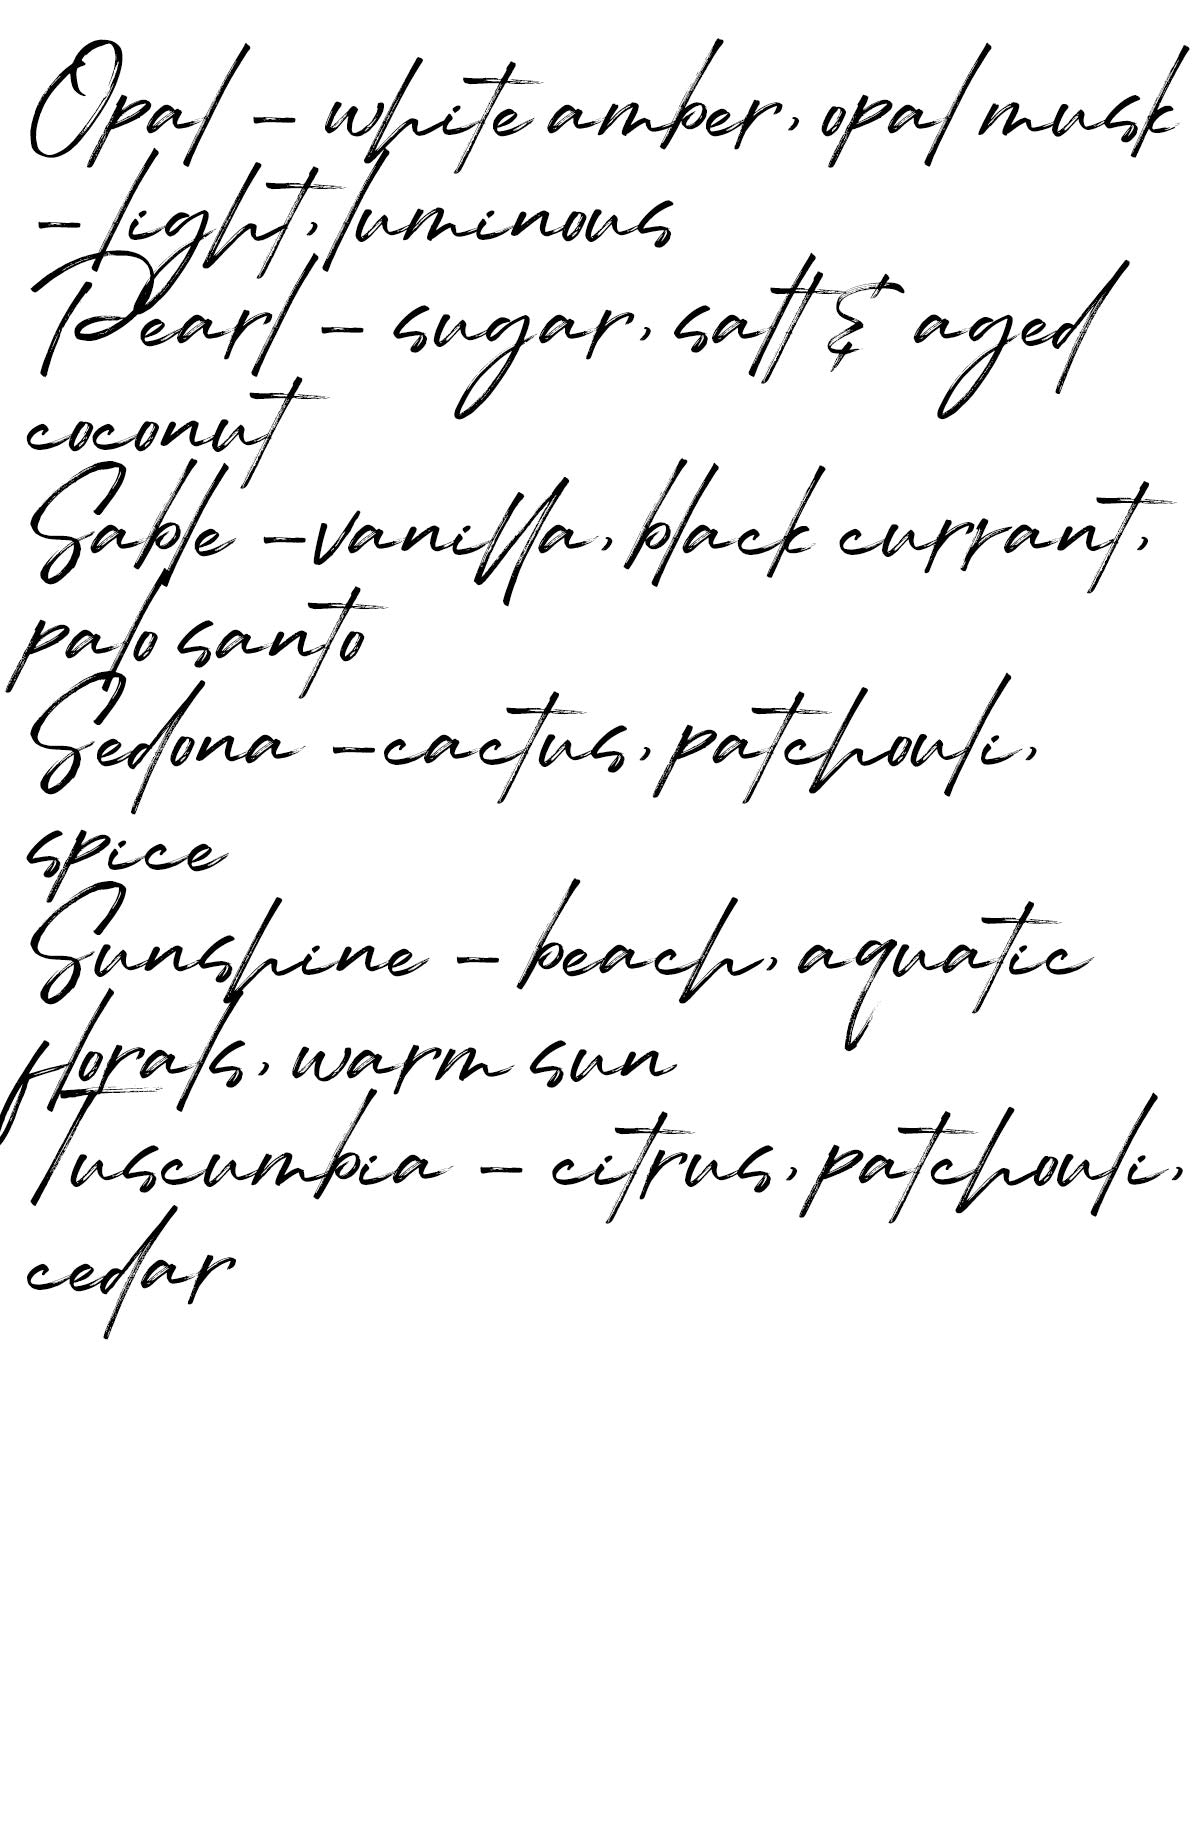 Opal – white amber, opal musk
– light, luminous
Pearl – sugar, salt & aged
coconut
Sable –vanilla, black currant,
palo santo
Sedona –cactus, patchouli,
spice
Sunshine – beach, aquatic
florals, warm sun
Tuscumbia – citrus, patchouli,
cedar